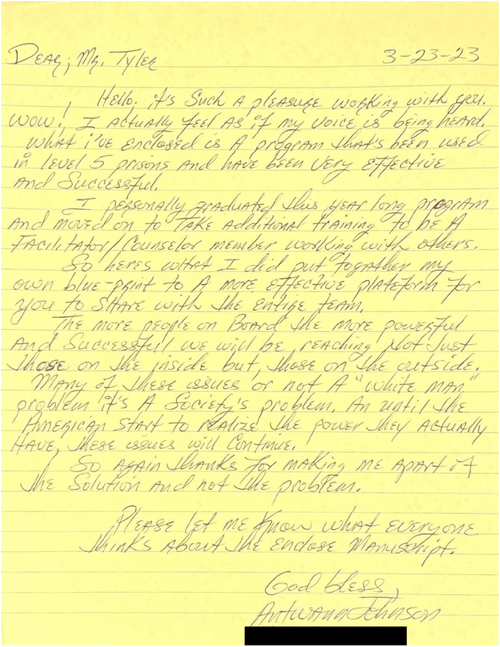 Dear, Mr. Tyler 3-23-23
Hello, it's Such A pleasure working with you.
WOW! I actually feel As if my voice is being heard.
What i've enclosed is A program that's been used
in level 5 prisons and have been very effective
and Successful.
I personally graduated this year long program
and moved on to Take additional training to be A
Facilitator/Counselor member working with others.
So heres what I did put together my
own blue-print to A more effective plateform for
you to share with the entire team.
The more people on Board the more powerful
and Successful we will be, reaching Not Just
those on the inside but, those on the outside.
Many of these issues or not A "white man"
problem it's A Society's problem. An until the
American start to realize the power they actually
Have, these issues will continue.
So again thanks for making me apart of
the Solution and not the problem.
Please let me know what everyone
thinks About the enclose Manuscript.
God bless,
Antwann Johnson